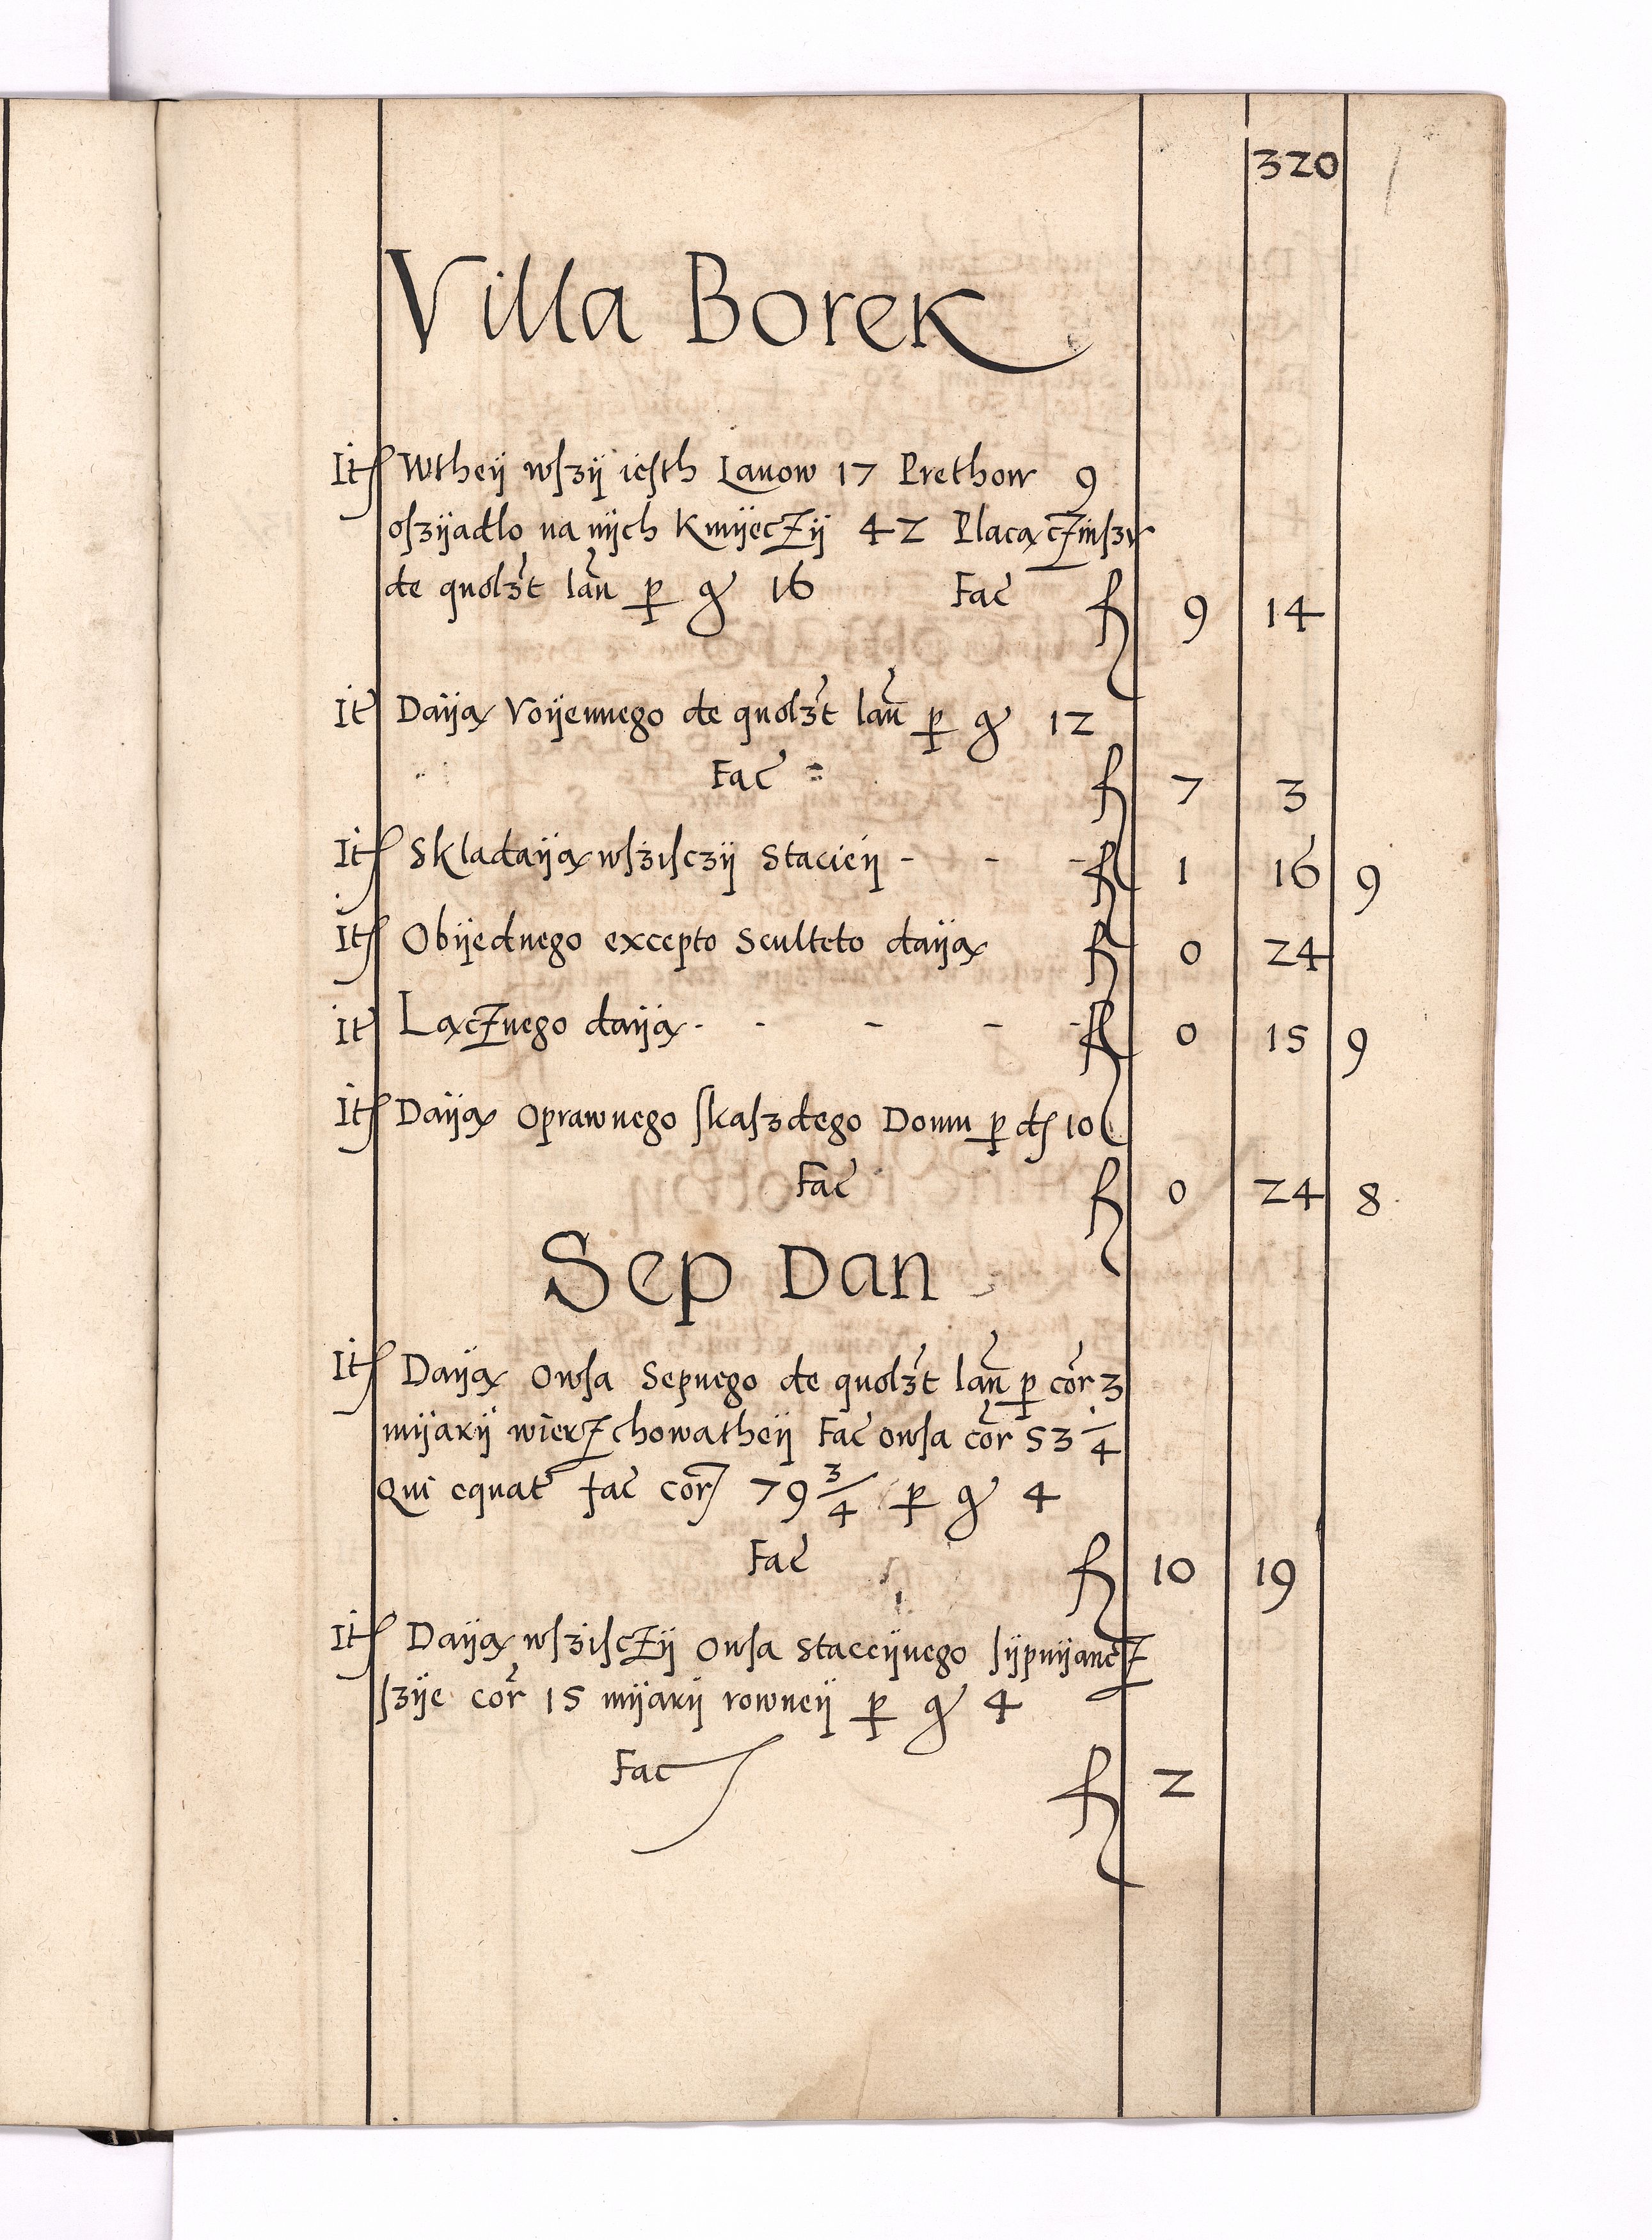 320
Villa Borek
It Wtheÿ wſzÿ iesth Lanow 17 Prethow 9
oſzÿadlo na nÿch Kmÿeczÿ 42 Placą czinſzu
de quolzt lan p gr 16 Fac fl 9 14
It Daÿą Voÿennego de quolzt lan p gr 12
Fac fl 7 3
It Skladaÿą wſziſczÿ Stacieÿ - - - fl 1 16 9
It Obÿednego excepto Sculteto daÿą fl 0 24
It Lącznego daÿą - - - - - fl 0 15 9
It Daÿą Oprawnego ſkaſzdego Domu p d 10
Fac fl 0 24 8
Sep Dan
It Daÿą Owſa Sepnego de quolzt lan p cor 3
mÿarÿ wierzchowatheÿ Fac owſa cor 53 1/4
Qui equat fac cor 79 3/4 p gr 4
Fac fl 10 19
It Daÿą wſziſczÿ Owſa Staceÿnego ſÿpnÿancz
ſzÿe cor 15 mÿarÿ rowneÿ p gr 4
Fac fl 2